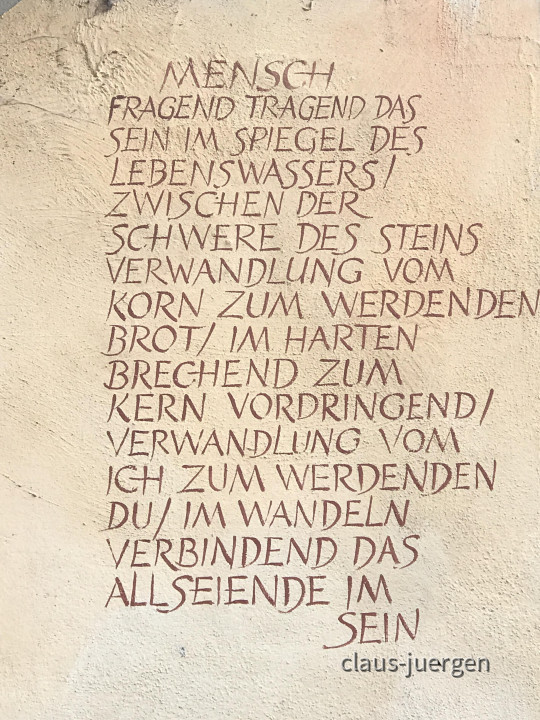 MENSCH
FRAGEND TRAGEND DAS
SEIN IM SPIEGEL DES
LEBENSWASSERS/
ZWISCHEN DER
SCHWERE DES STEINS
VERWANDLUNG VOM
KORN ZUM WERDENDEN
BROT/ IM HARTEN
BRECHEND ZUM
KERN VORDRINGEND/
VERWANDLUNG VOM
ICH ZUM WERDENDEN
DU/ IM WANDELN
VERBINDEND DAS
ALLSEIENDE IM
SEIN
claus-juergen